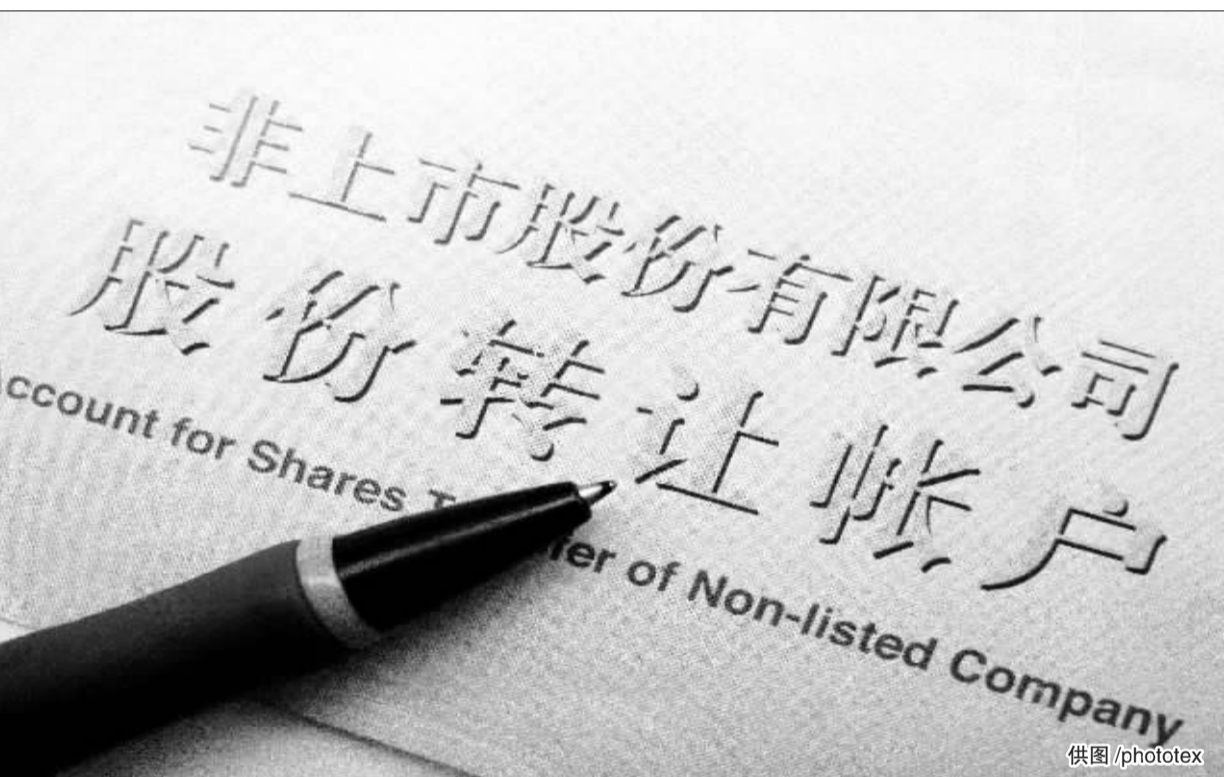 非上市股份有限公司
股份转让帐户
ccount for Shares fer of Non-listed Company
供图/phototex